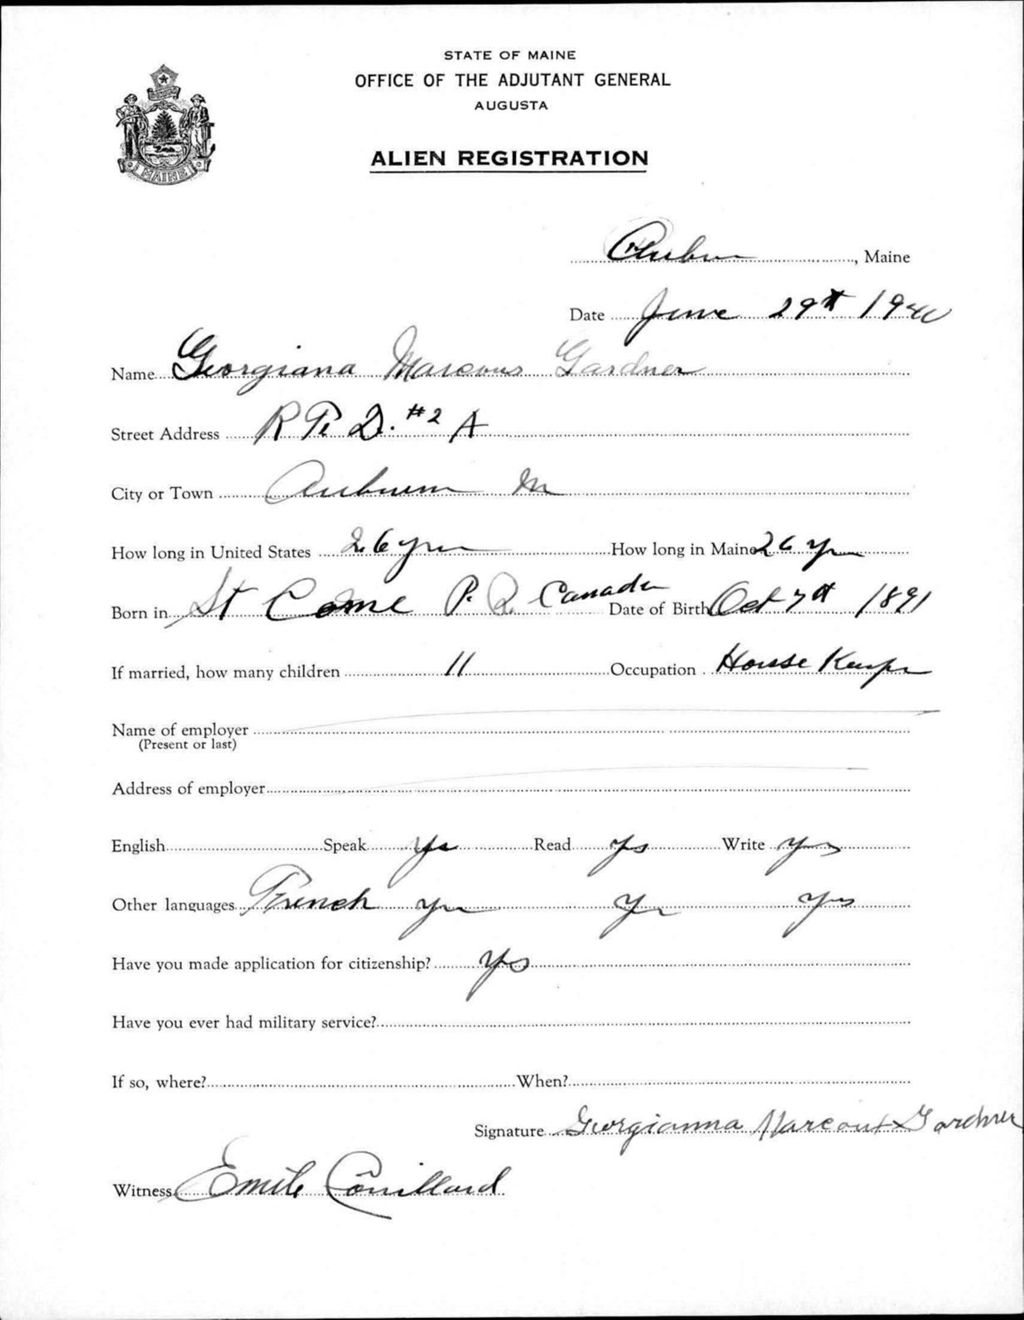 STATE OF MAINE
OFFICE OF THE ADJUTANT GENERAL
AUGUSTA
ALIEN REGISTRATION
MAINE
Auburn, Maine
Date June 29th 1940
Name Georgiana Marcous Gardner
Street Address R F D. #2 A
City or Town Auburn M
How long in United States 26 yrs How long in Maine 26 yrs
Born in St Come P. Q. Canada Date of Birth Oct 7th 1891
If married, how many children 11 Occupation House Keeper
Name of employer
(Present or last)
Address of employer
English Speak Yes Read Yes Write Yes
Other languages French yes yes yes
Have you made application for citizenship? Yes
Have you ever had military service?
If so, where? When?
Signature Georgianna Marcoux Gardner
Witness Emile Couillard